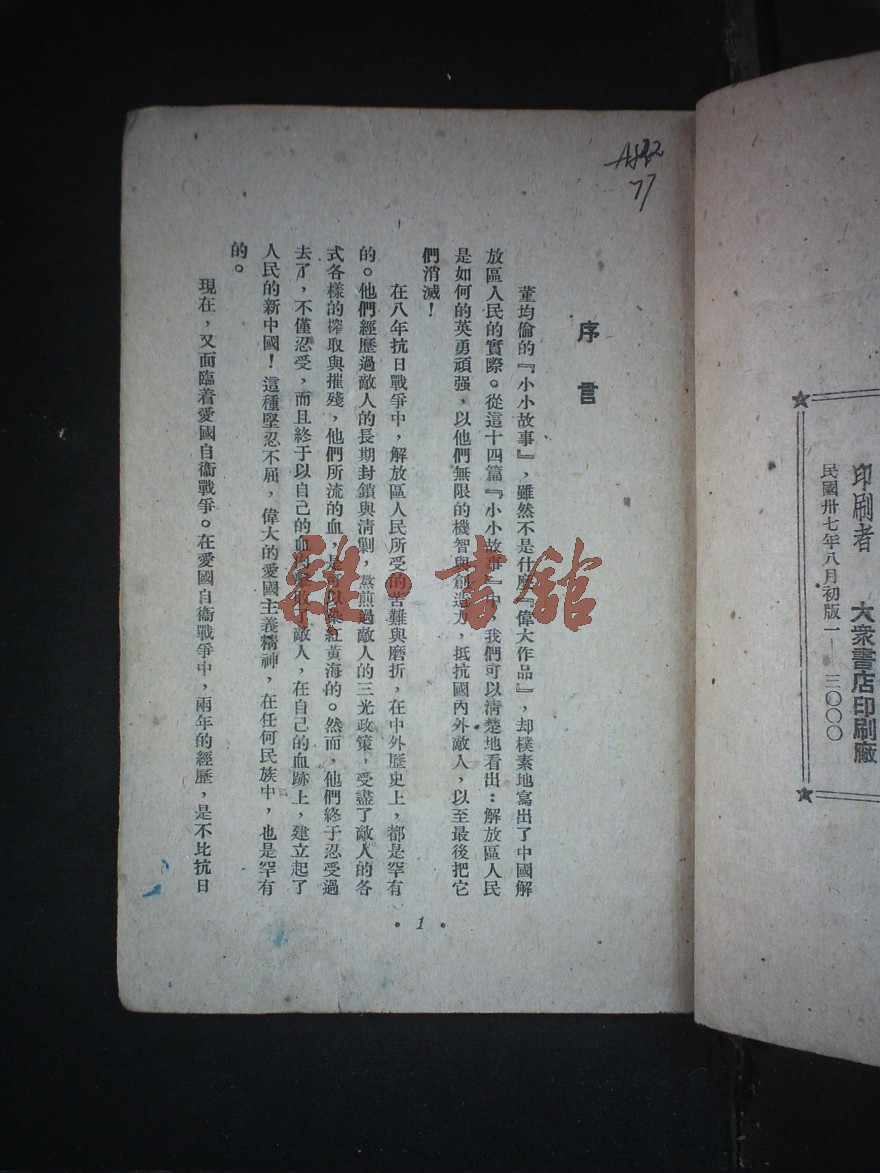 印刷者 大衆書店印刷廠
民國卅七年八月初版一—三〇〇〇
77
序言
董均倫的『小小故事』，雖然不是什麼『偉大作品』，却樸素地寫出了中國解
放區人民的實際。從這十四篇『小小故事』中，我們可以清楚地看出：解放區人民
是如何的英勇頑强，以他們無限的機智與創造力，抵抗國內外敵人，以至最後把它
們消滅！
在八年抗日戰爭中，解放區人民所受的苦難與磨折，在中外歷史上，都是罕有
的。他們經歷過敵人的長期封鎖與淸剿，熬煎過敵人的三光政策，受盡了敵人的各
式各樣的搾取與摧殘，他們所流的血，是可以染紅黃海的。然而，他們終于忍受過
去了，不僅忍受，而且終于以自己的血肉擊敗了敵人，在自己的血跡上，建立起了
人民的新中國！這種堅忍不屈，偉大的愛國主義精神，在任何民族中，也是罕有
的。
現在，又面臨着愛國自衞戰爭。在愛國自衞戰爭中，兩年的經歷，是不比抗日
• 1 •
雜·書館